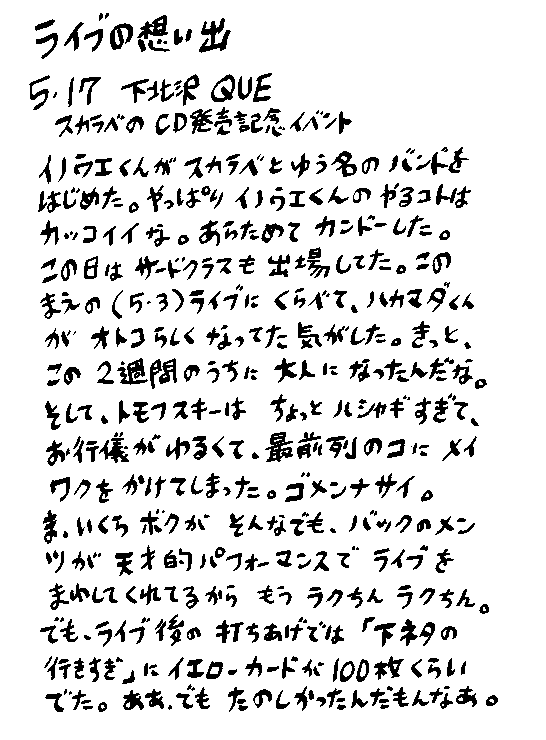 ライブの想い出
5·17 下北沢 QUE
スカラベの CD発売記念イベント
イノウエくんが スカラベと ゆう名の バンドを
はじめた。やっぱり イノウエくんの やるコトは
カッコイイな。あらためて カンドーした。
この日は サードクラスも 出場してた。この
まえの (5·3)ライブに くらべて、ハカマダくん
が オトコらしく なってた 気がした。きっと、
この 2週間のうちに 大人に なったんだな。
そして、トモフスキーは ちょっと ハシャギすぎて、
お行儀が わるくて、最前列のコに メイ
ワクを かけてしまった。ゴメンナサイ。
ま、いくら ボクが そんなでも、バックのメン
ツが 天才的パフォーマンスで ライブを
まわしてくれてるから もう ラクちん ラクちん。
でも、ライブ後の 打ちあげでは「下ネタの
行きすぎ」に イエローカードが 100枚くらい
でた。ああ、でも たのしかったんだもんなあ。